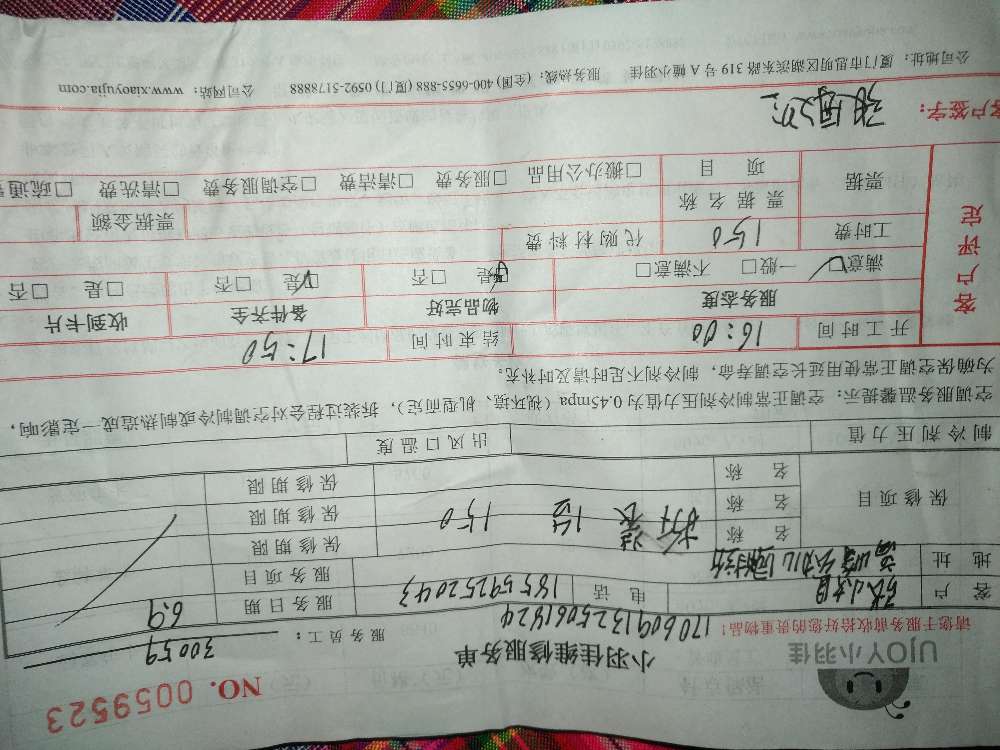 NO. 0059523
UJOY小羽佳
小羽佳维修服务单
服务员工： 30059
请您于服务前收拾好您的贵重物品！
1706091325061824
客 户
电 话 18559252043
服务日期 6.9
地 址
服务项目
保修项目
名 称 拆装 1台 150
保修期限
名 称
保修期限
名 称
保修期限
制冷剂压力值
出风口温度
空调服务温馨提示：空调正常制冷剂压力值为0.45mpa（视环境、机型而定），拆装过程会对空调制冷或制热造成一定影响，
为确保空调正常使用延长空调寿命，制冷剂不足时请及时补充。
客户评定
开工时间 16:00 结束时间 17:50
服务态度 物品完好 备件齐全 收到卡片
满意□ 一般□ 不满意□ □是 □否 □是 □否 □是 □否
工时费 150 代购材料费
票据 票据名称 票据金额
项 目 □搬办公用品 □服务费 □清洁费 □空调服务费 □清洗费 □疏通费
客户签字：
公司地址：厦门市思明区湖滨东路319号A幢小羽佳 服务热线：(全国)400-6655-888 (厦门) 0592-5178888 公司网站：www.xiaoyujia.com